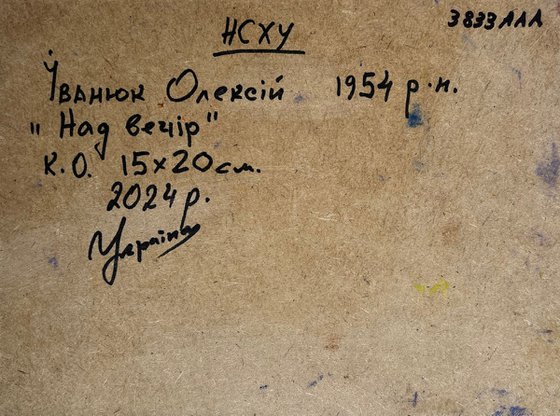 НСХУ
3833ЛЛЛ
Іванюк Олексій 1954 р.н.
"Над вечір"
К.О. 15x20см.
2024р.
Україна